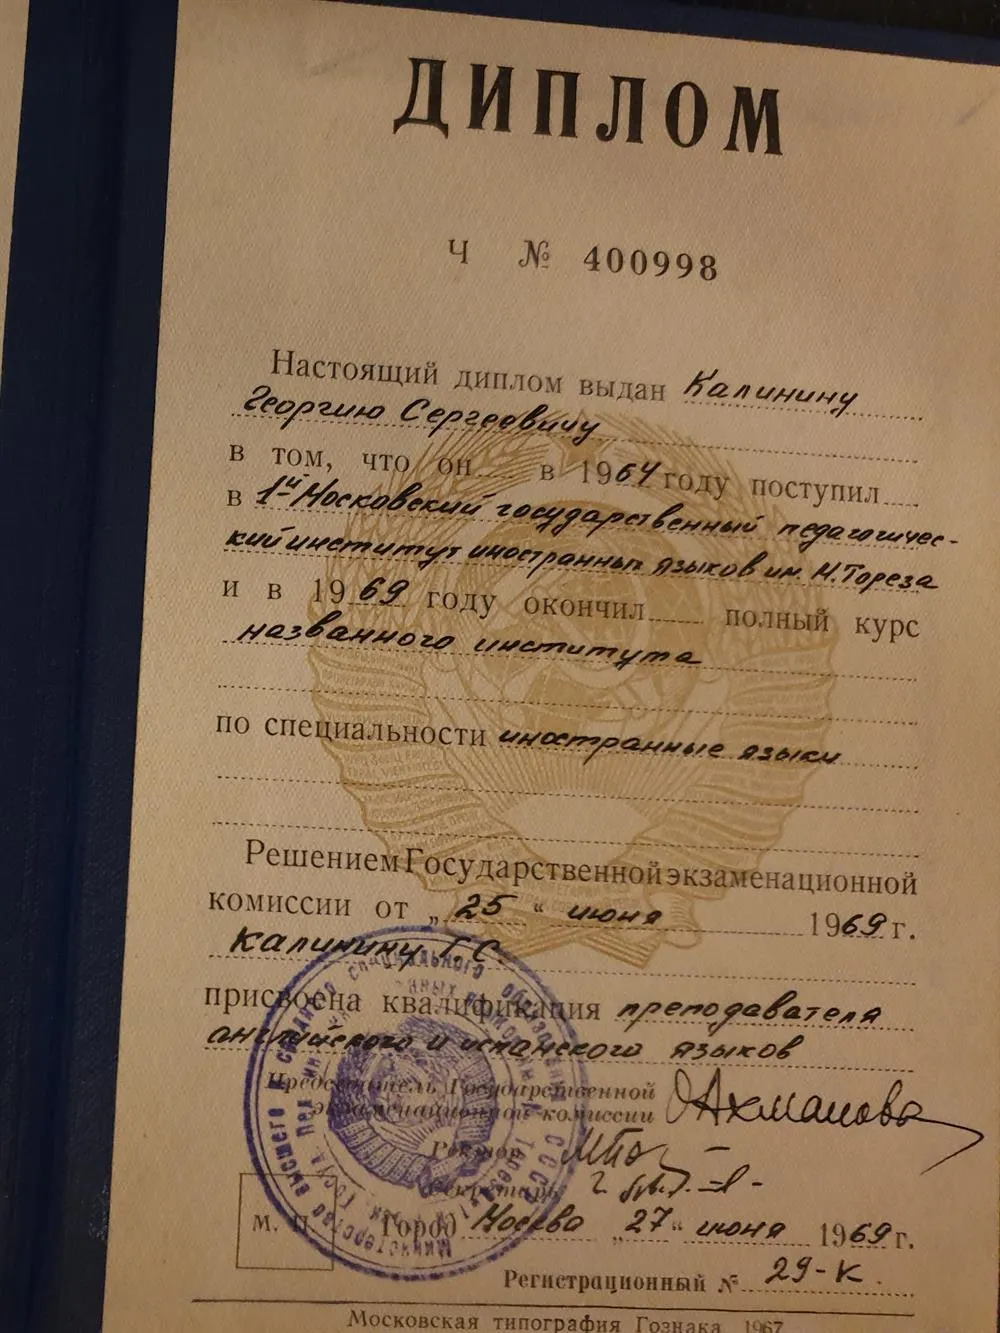 ДИПЛОМ
Ч № 400998
Настоящий диплом выдан Калинину
Георгию Сергеевичу
в том, что он в 1964 году поступил
в 1й Московский государственный педагогичес-
кий институт иностранных языков им. М. Тореза
и в 1969 году окончил полный курс
названного института
по специальности иностранные языки
Решением Государственной экзаменационной
комиссии от „25“ июня 1969 г.
Калинину Г. С.
присвоена квалификация преподавателя
английского и испанского языков
Председатель Государственной
экзаменационной комиссии ОАхманова
Ректор
Секретарь
М. П. Город Москва „27“ июня 1969 г.
Регистрационный № 29-К.
Московская типография Гознака. 1967.
Министерство высшего и среднего специального образования СССР